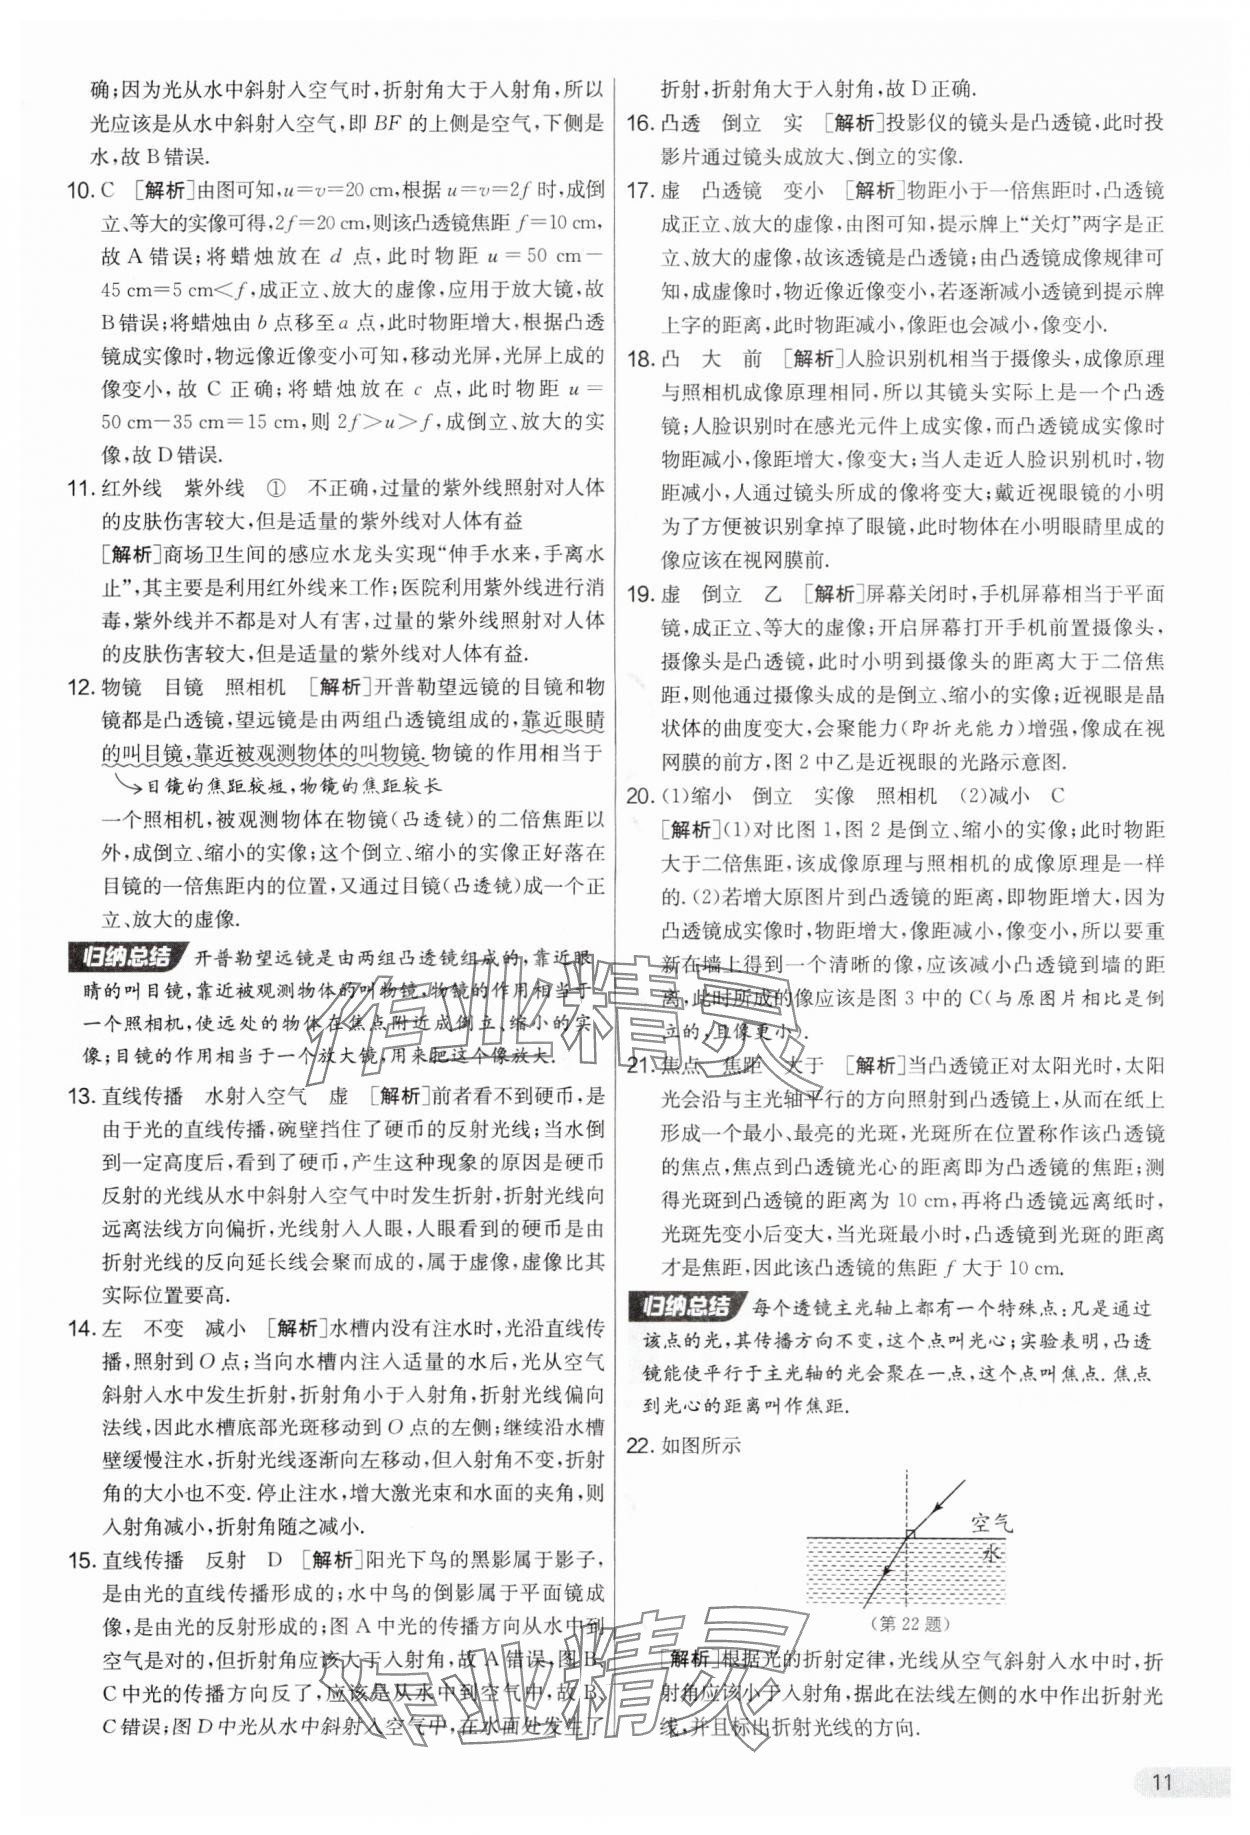 确;因为光从水中斜射入空气时,折射角大于入射角,所以
光应该是从水中斜射入空气,即 BF 的上侧是空气,下侧是
水,故 B错误.
10. C [解析]由图可知,u=v=20 cm,根据 u=v=2f 时,成倒
立、等大的实像可得,2f=20 cm,则该凸透镜焦距 f=10 cm,
故 A 错误;将蜡烛放在 d 点,此时物距 u=50 cm-
45 cm=5 cm<f,成正立、放大的虚像,应用于放大镜,故
B错误;将蜡烛由 b 点移至a 点,此时物距增大,根据凸透
镜成实像时,物远像近像变小可知,移动光屏,光屏上成的
像变小,故 C 正确;将蜡烛放在 c 点,此时物距 u=
50 cm-35 cm=15 cm,则 2f>u>f,成倒立、放大的实
像,故 D错误.
11. 红外线 紫外线 ① 不正确,过量的紫外线照射对人体
的皮肤伤害较大,但是适量的紫外线对人体有益
[解析]商场卫生间的感应水龙头实现“伸手水来,手离水
止”,其主要是利用红外线来工作;医院利用紫外线进行消
毒,紫外线并不都是对人有害,过量的紫外线照射对人体的
皮肤伤害较大,但是适量的紫外线对人体有益.
12. 物镜 目镜 照相机 [解析]开普勒望远镜的目镜和物
镜都是凸透镜,望远镜是由两组凸透镜组成的,靠近眼睛
的叫目镜,靠近被观测物体的叫物镜.物镜的作用相当于
目镜的焦距较短,物镜的焦距较长
一个照相机,被观测物体在物镜(凸透镜)的二倍焦距以
外,成倒立、缩小的实像;这个倒立、缩小的实像正好落在
目镜的一倍焦距内的位置,又通过目镜(凸透镜)成一个正
立、放大的虚像.
归纳总结 开普勒望远镜是由两组凸透镜组成的,靠近眼
睛的叫目镜,靠近被观测物体的叫物镜,物镜的作用相当于
一个照相机,使远处的物体在焦点附近成倒立、缩小的实
像;目镜的作用相当于一个放大镜,用来把这个像放大.
13. 直线传播 水射入空气 虚 [解析]前者看不到硬币,是
由于光的直线传播,碗壁挡住了硬币的反射光线;当水倒
到一定高度后,看到了硬币,产生这种现象的原因是硬币
反射的光线从水中斜射入空气中时发生折射,折射光线向
远离法线方向偏折,光线射入人眼,人眼看到的硬币是由
折射光线的反向延长线会聚而成的,属于虚像,虚像比其
实际位置要高.
14. 左 不变 减小 [解析]水槽内没有注水时,光沿直线传
播,照射到 O 点;当向水槽内注入适量的水后,光从空气
斜射入水中发生折射,折射角小于入射角,折射光线偏向
法线,因此水槽底部光斑移动到 O 点的左侧;继续沿水槽
壁缓慢注水,折射光线逐渐向左移动,但入射角不变,折射
角的大小也不变.停止注水,增大激光束和水面的夹角,则
入射角减小,折射角随之减小.
15. 直线传播 反射 D [解析]阳光下鸟的黑影属于影子,
是由光的直线传播形成的;水中鸟的倒影属于平面镜成
像,是由光的反射形成的;图 A 中光的传播方向从水中到
空气是对的,但折射角应该大于入射角,故 A 错误;图 B、
C中光的传播方向反了,应该是从水中到空气中,故 B、
C错误;图 D中光从水中斜射入空气中,在水面处发生了
折射,折射角大于入射角,故 D正确.
16. 凸透 倒立 实 [解析]投影仪的镜头是凸透镜,此时投
影片通过镜头成放大、倒立的实像.
17. 虚 凸透镜 变小 [解析]物距小于一倍焦距时,凸透镜
成正立、放大的虚像,由图可知,提示牌上“关灯”两字是正
立、放大的虚像,故该透镜是凸透镜;由凸透镜成像规律可
知,成虚像时,物近像近像变小,若逐渐减小透镜到提示牌
上字的距离,此时物距减小,像距也会减小,像变小.
18. 凸 大 前 [解析]人脸识别机相当于摄像头,成像原理
与照相机成像原理相同,所以其镜头实际上是一个凸透
镜;人脸识别时在感光元件上成实像,而凸透镜成实像时
物距减小,像距增大,像变大;当人走近人脸识别机时,物
距减小,人通过镜头所成的像将变大;戴近视眼镜的小明
为了方便被识别拿掉了眼镜,此时物体在小明眼睛里成的
像应该在视网膜前.
19. 虚 倒立 乙 [解析]屏幕关闭时,手机屏幕相当于平面
镜,成正立、等大的虚像;开启屏幕打开手机前置摄像头,
摄像头是凸透镜,此时小明到摄像头的距离大于二倍焦
距,则他通过摄像头成的是倒立、缩小的实像;近视眼是晶
状体的曲度变大,会聚能力(即折光能力)增强,像成在视
网膜的前方,图 2 中乙是近视眼的光路示意图.
20. (1)缩小 倒立 实像 照相机 (2)减小 C
[解析](1)对比图 1,图 2 是倒立、缩小的实像;此时物距
大于二倍焦距,该成像原理与照相机的成像原理是一样
的.(2)若增大原图片到凸透镜的距离,即物距增大,因为
凸透镜成实像时,物距增大,像距减小,像变小,所以要重
新在墙上得到一个清晰的像,应该减小凸透镜到墙的距
离,此时所成的像应该是图 3 中的 C(与原图片相比是倒
立的,且像更小).
21. 焦点 焦距 大于 [解析]当凸透镜正对太阳光时,太阳
光会沿与主光轴平行的方向照射到凸透镜上,从而在纸上
形成一个最小、最亮的光斑,光斑所在位置称作该凸透镜
的焦点,焦点到凸透镜光心的距离即为凸透镜的焦距;测
得光斑到凸透镜的距离为 10 cm,再将凸透镜远离纸时,
光斑先变小后变大,当光斑最小时,凸透镜到光斑的距离
才是焦距,因此该凸透镜的焦距 f 大于 10 cm.
归纳总结 每个透镜主光轴上都有一个特殊点;凡是通过
该点的光,其传播方向不变,这个点叫光心;实验表明,凸透
镜能使平行于主光轴的光会聚在一点,这个点叫焦点.焦点
到光心的距离叫作焦距.
22. 如图所示
空气
水
(第 22 题)
[解析]根据光的折射定律,光线从空气斜射入水中时,折
射角应该小于入射角,据此在法线左侧的水中作出折射光
线,并且标出折射光线的方向.
作业精灵
作业精灵
11